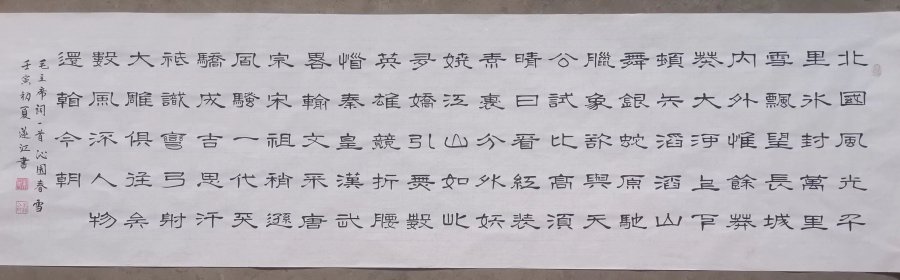 北國風光千
里冰封萬里
雪飄望長城
內外惟餘莽
莽大河上下
頓失滔滔山
舞銀蛇原馳
臘象欲與天
公試比高須
晴日看紅裝
素裹分外妖
嬈江山如此
多嬌引無數
英雄競折腰
惜秦皇漢武
畧輸文采唐
宗宋祖稍遜
風騷一代天
驕成吉思汗
祗識彎弓射
大雕俱往矣
數風流人物
還看今朝
毛主席詞一首 沁園春 雪
壬寅初夏江書